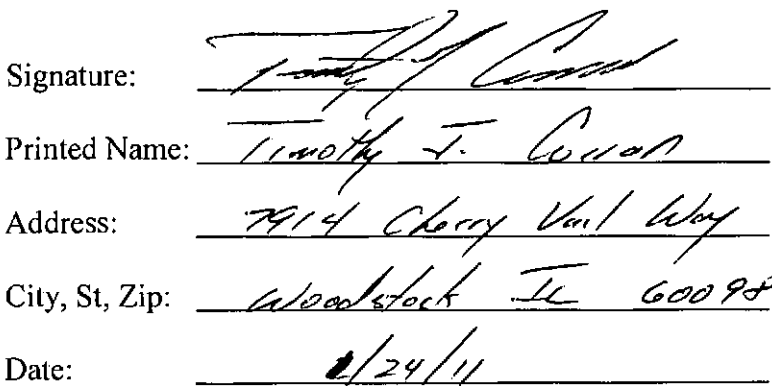 Signature: Timothy J
Printed Name: Timothy J. Curran
Address: 7914 Cherry Way
City, St, Zip: Woodstock IL 60098
Date: /24/11